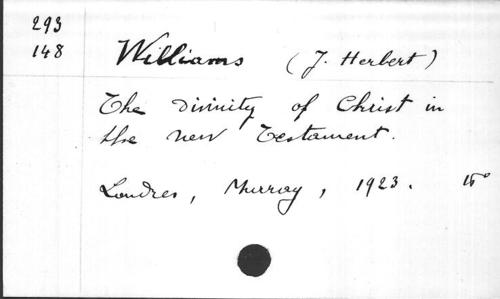 293
148
Williams (J. Herbert)
The divinity of Christ in
the new Testament.
Londres, Murray, 1923.